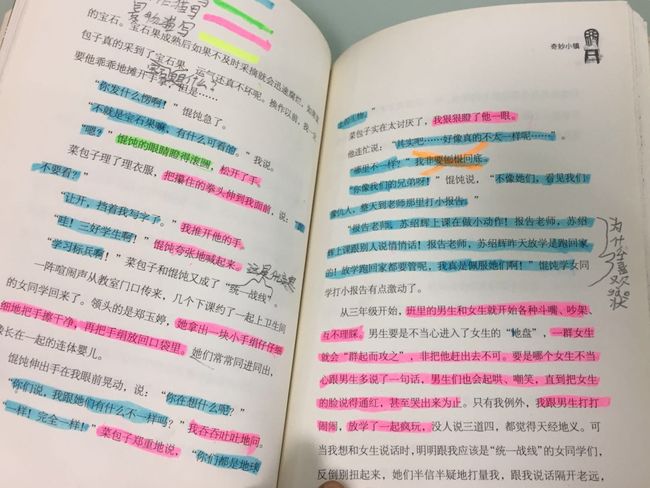 写
动物描写
的宝石。宝石果成熟后如果不及时采摘就会迅速腐烂，如果是
包子真的采到了宝石果，运气还真不坏呢。操作以前，我一定
要他乖乖地摊开手掌，但是……
“你发什么愣啊！”馄饨急了。
“不就是宝石果嘛，有什么可看的。”我说。
“嗯？”馄饨的眼睛瞪得滚圆，松开了手。
菜包子理了理衣服，把攥住的拳头伸到我面前，说：“
不要看？”
“让开，挡着我写字了。”我推开他的手。
“哇！三好学生啊！”馄饨夸张地喊起来。
“学习标兵啊！”菜包子和馄饨又成了“统一战线”。
一阵喧闹声从教室门口传来，几个下课约了一起上卫生间
的女同学回来了。领头的是郑玉婷，她拿出一块小手绢仔仔细
细地把手擦干净，再把手绢放回口袋里。她们常常同进同出，
像长在一起的连体婴儿。
馄饨伸出手在我眼前晃动，说：“你在想什么呢？”
“你们说，我跟她们有什么不一样吗？”我吞吞吐吐地问。
“一样！完全一样！”菜包子郑重地说，“你们都是地球
奇妙小镇
菜包子实在太讨厌了，我狠狠瞪了他一眼。
他连忙说：“其实吧……好像真的不太一样呢……”
“哪里不一样？”我非要刨根问底。
“你像我们的兄弟呀！”馄饨说，“不像她们，看见我们
像仇人，整天到老师那里打小报告。”
“报告老师，苏绍辉上课在做小动作！报告老师，苏绍
辉上课跟别人说悄悄话！报告老师，苏绍辉昨天放学是跑回家
的！放学跑回家都要管呢，我真是佩服她们啊！”馄饨学女同
学打小报告有点激动了。
为什么喜欢告状
从三年级开始，班里的男生和女生就开始各种斗嘴、吵架、
互不理睬。男生要是不当心进入了女生的“地盘”，一群女生
就会“群起而攻之”，非把他赶出去不可。要是哪个女生不当
心跟男生多说了一句话，男生们也会起哄、嘲笑，直到把女生
的脸说得通红，甚至哭出来为止。只有我例外，我跟男生打打
闹闹，放学了一起疯玩，没人说三道四，都觉得天经地义。可
当我想和女生说话时，明明跟我应该是“统一战线”的女同学们，
反倒别扭起来，她们半信半疑地打量我，跟我说话隔开老远，